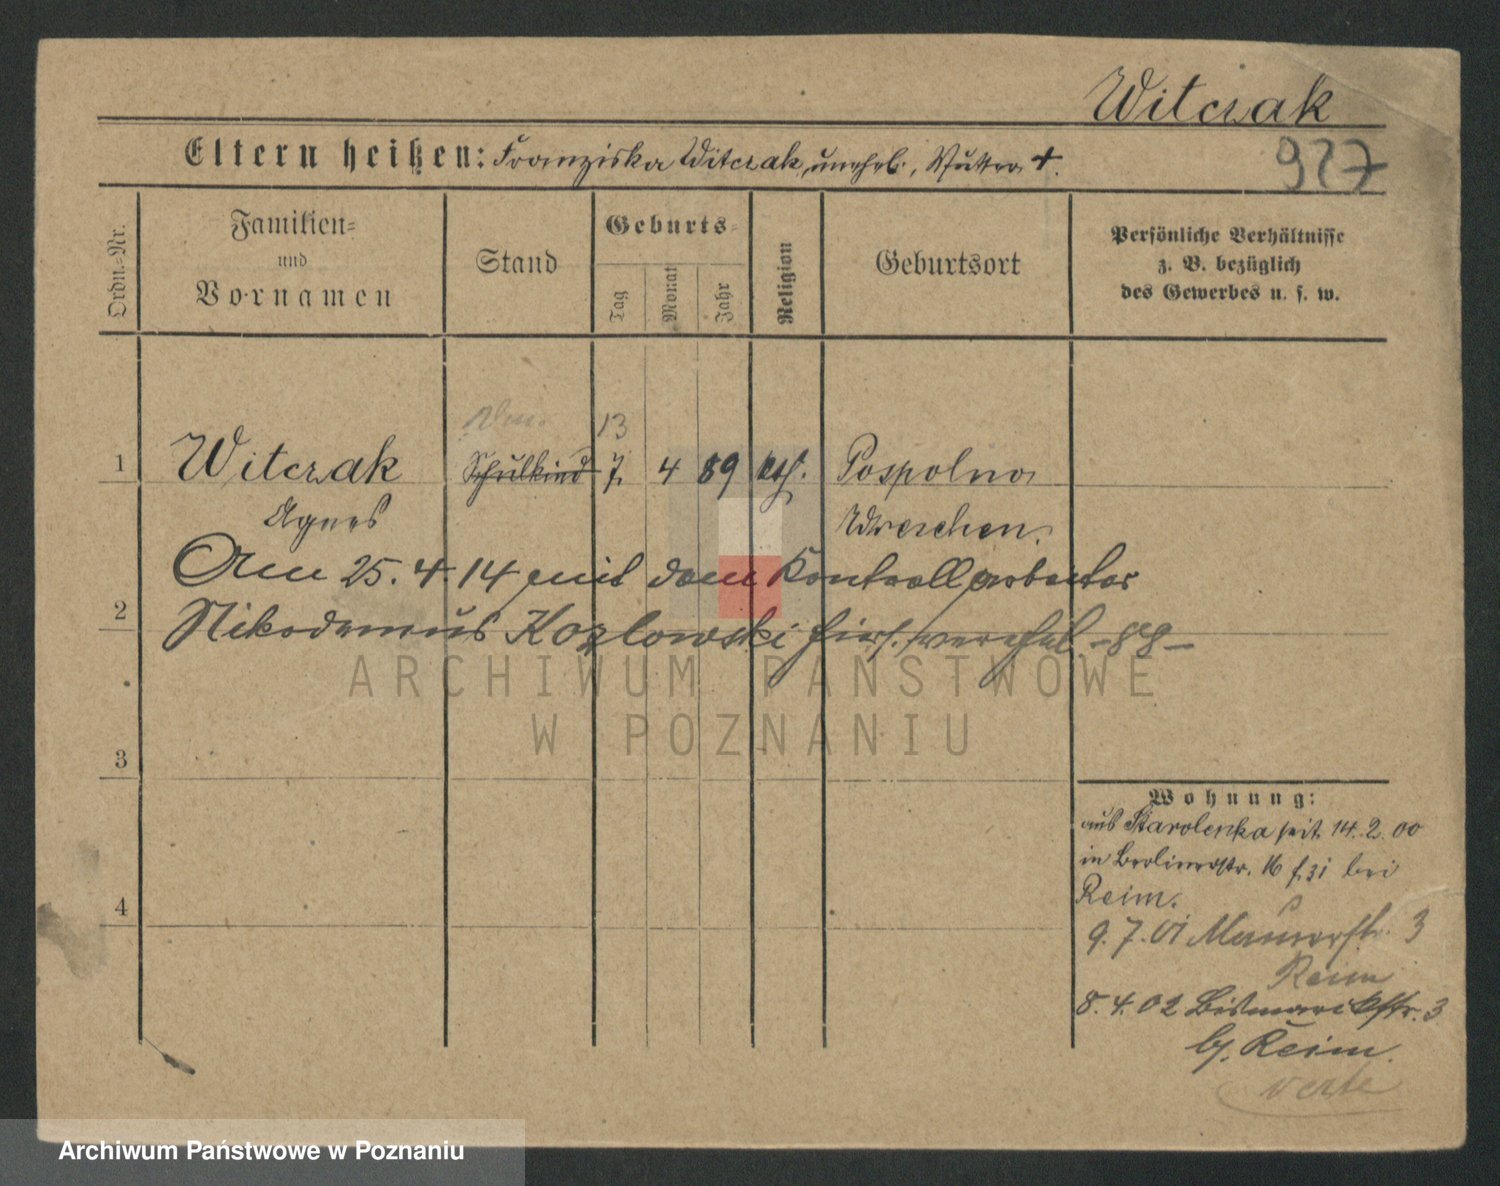 Witczak
Eltern heißen: Franziska Witczak, unehel., Mutter +.
927
Ordn.=Nr.
Familien=
und
Vornamen
Stand
Geburts=
Tag
Monat
Jahr
Religion
Geburtsort
Persönliche Verhältnisse
z. B. bezüglich
des Gewerbes u. s. w.
13
1 Witczak Schulkind 7. 4 89 kth. Pospolno
Agnes Wreschen.
Am 25.4.14 mit dem Kontrollarbeiter
2
Nikodemus Kozlowski hier verehel.
3
4
Wohnung:
aus Starolenka seit 14.2.00
in Berlinerstr. 16 bei
Reim.
9.7.01 Mauerstr. 3
Reim
8.4.02 Bismarckstr. 3
bj. Reim.
verte
ARCHIWUM PAŃSTWOWE
W POZNANIU
Archiwum Państwowe w Poznaniu